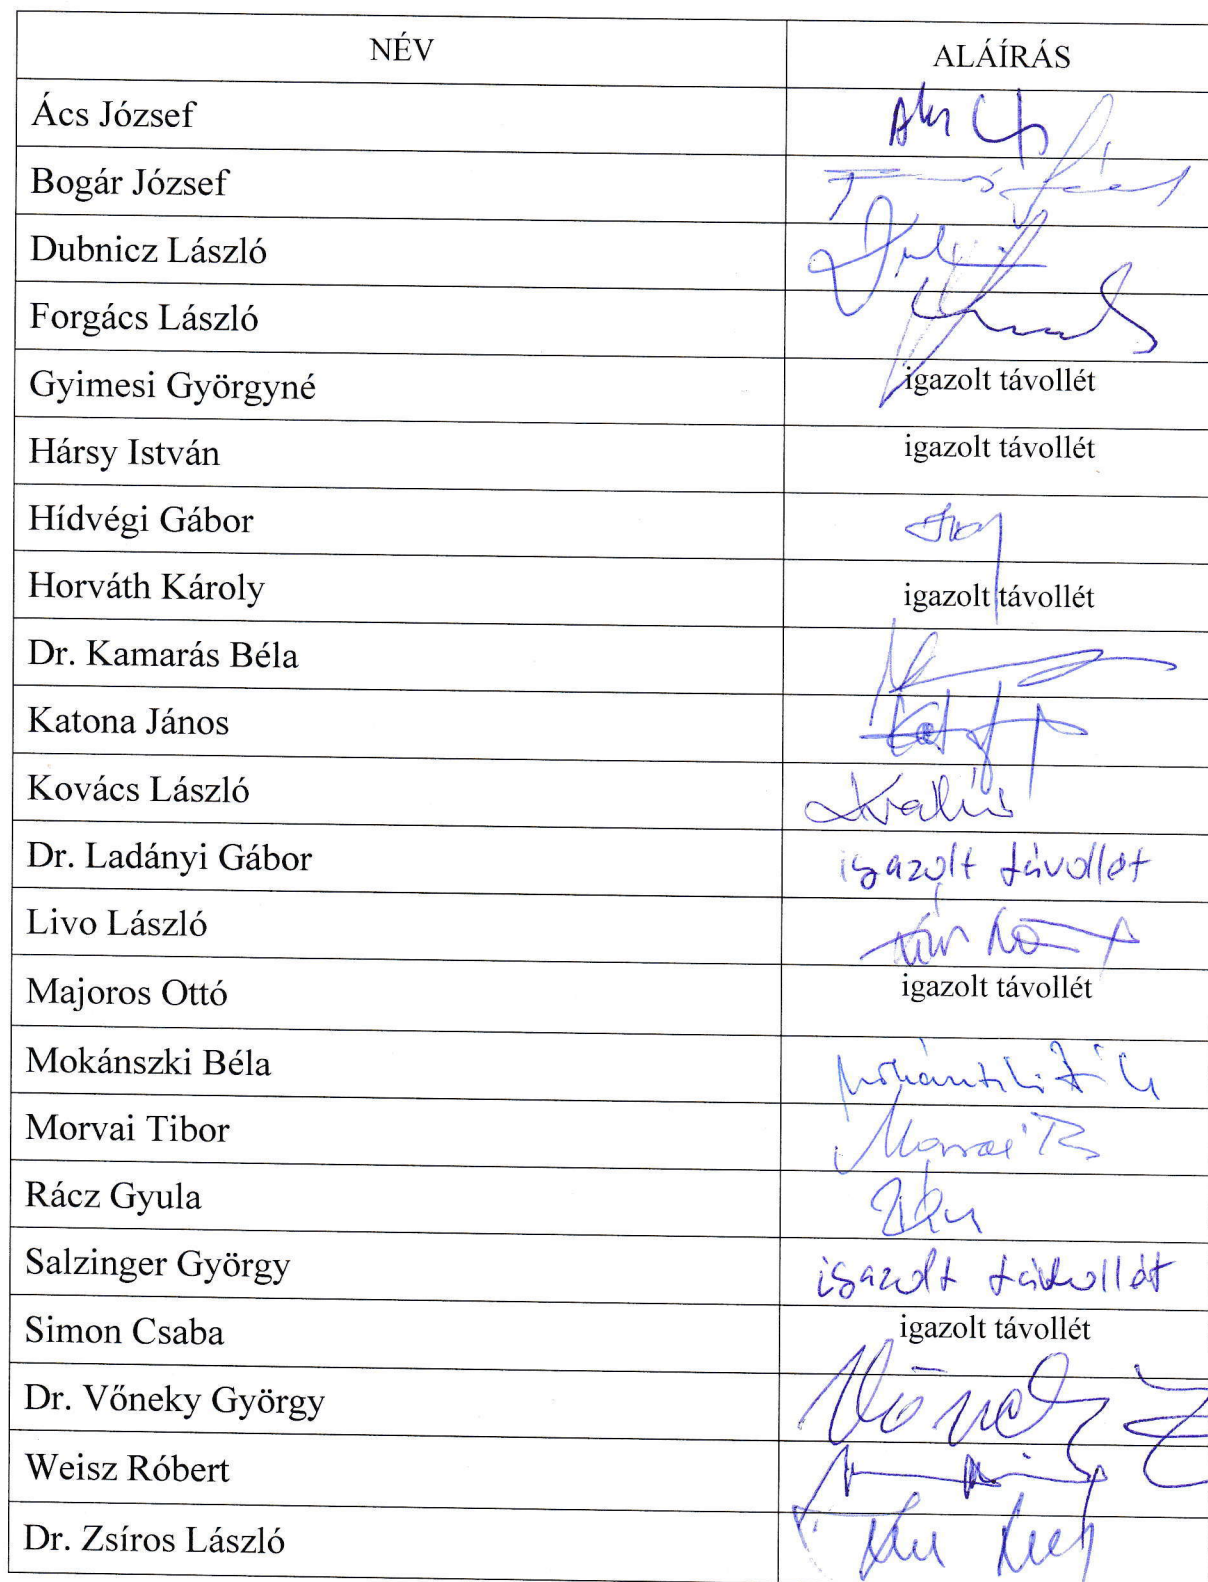 NÉV ALÁÍRÁS
Ács József
Bogár József
Dubnicz László
Forgács László
Gyimesi Györgyné igazolt távollét
Hársy István igazolt távollét
Hídvégi Gábor
Horváth Károly igazolt távollét
Dr. Kamarás Béla
Katona János
Kovács László
Dr. Ladányi Gábor igazolt távollét
Livo László
Majoros Ottó igazolt távollét
Mokánszki Béla
Morvai Tibor
Rácz Gyula
Salzinger György igazolt távollét
Simon Csaba igazolt távollét
Dr. Vőneky György
Weisz Róbert
Dr. Zsíros László